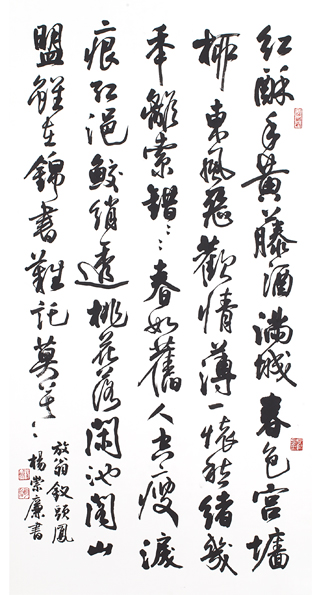 紅酥手黃藤酒滿城春色宮墻
柳東風惡歡情薄一懷愁緒幾
年離索錯〻〻春如舊人空瘦淚
痕紅浥鮫綃透桃花落閑池閣山
盟雖在錦書難託莫〻〻
放翁釵頭鳳
楊崇廉書